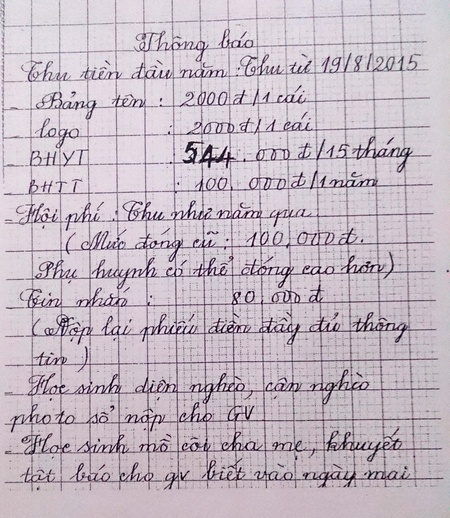 Thông báo
Thu tiền đầu năm : Thu từ 19/8/2015
- Bảng tên : 2000đ/1 cái
- logo : 2000đ/1 cái
- BHYT : 544.000đ/15 tháng
- BHTT : 100.000đ/1 năm
- Hội phí : Thu như năm qua.
( Mức đóng cũ : 100.000đ.
Phụ huynh có thể đóng cao hơn )
Tin nhắn : 80.000đ
( Nộp lại phiếu điền đầy đủ thông
tin )
- Học sinh diện nghèo, cận nghèo
photo sổ nộp cho GV
- Học sinh mồ côi cha mẹ, khuyết
tật báo cho gv biết vào ngày mai